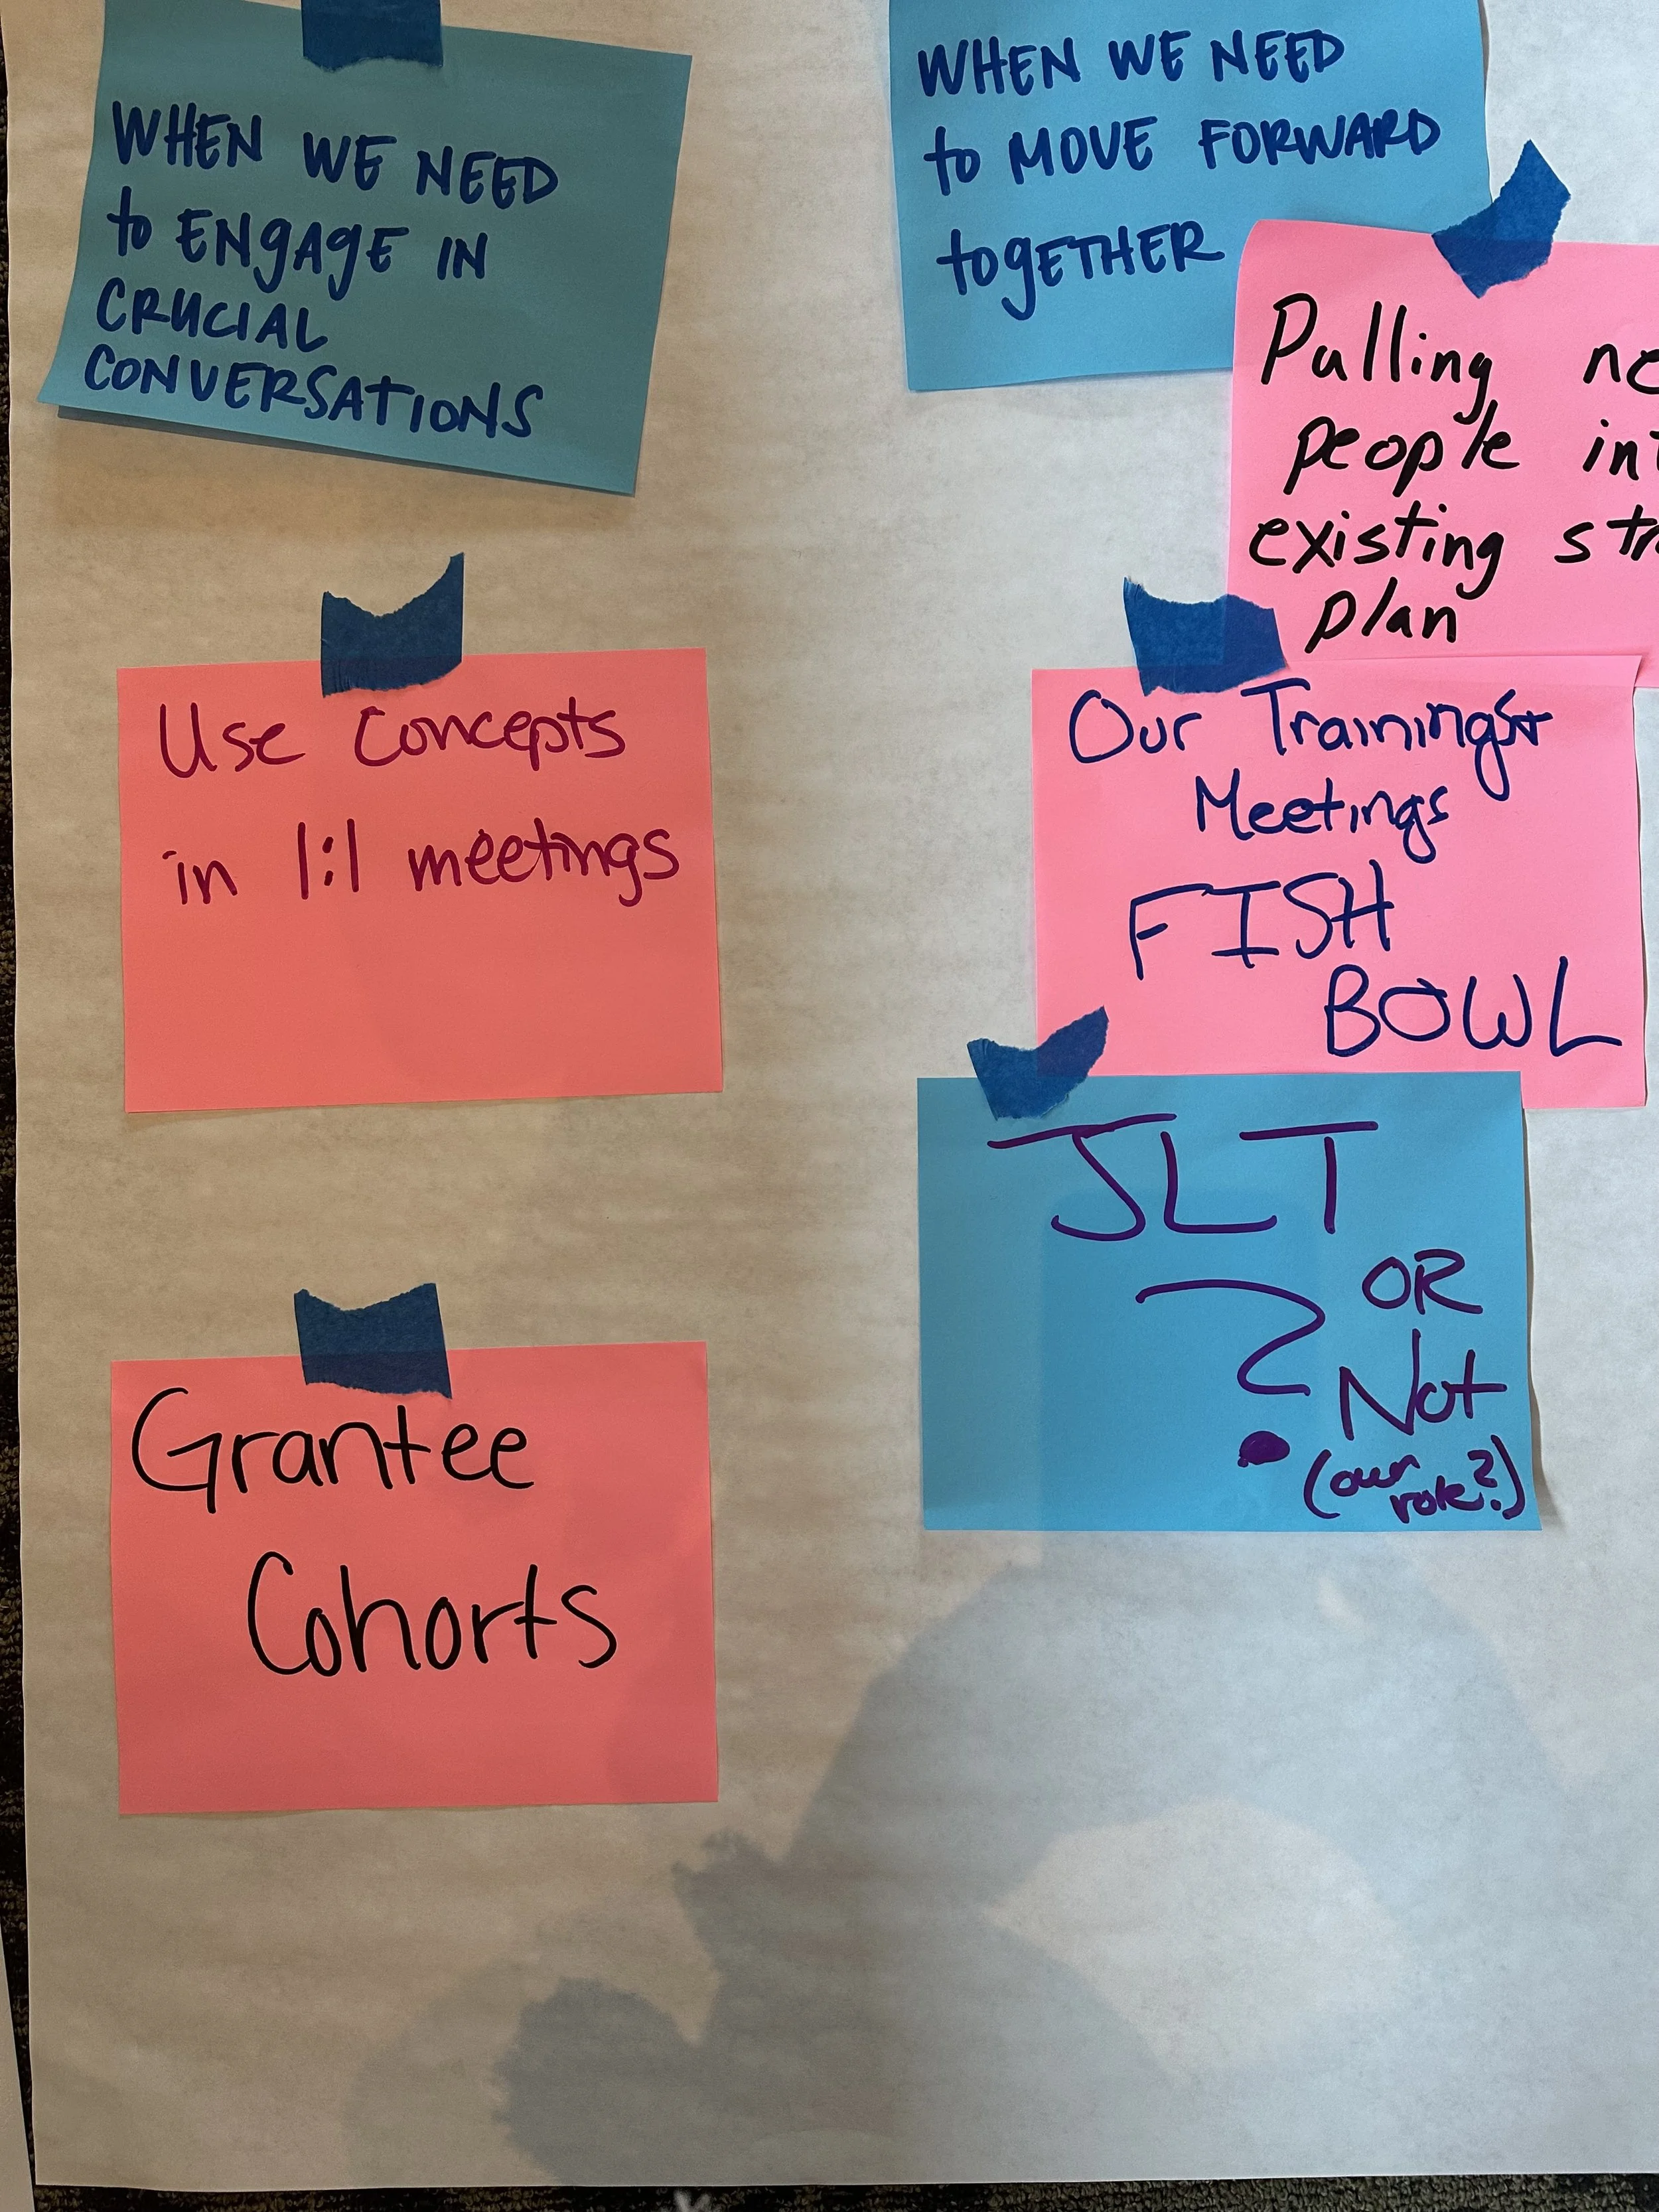 WHEN WE NEED
to ENgAgE IN
CRUCIAL
CONVERSATIONS
Use Concepts
in 1:1 meetings
Grantee
Cohorts
WHEN WE NEED
to MOVE FORWARD
togETHER
Pulling
people
existing
plan
Our Trainings+
Meetings
FISH
BOWL
JLT
? OR
Not
(our
role?)